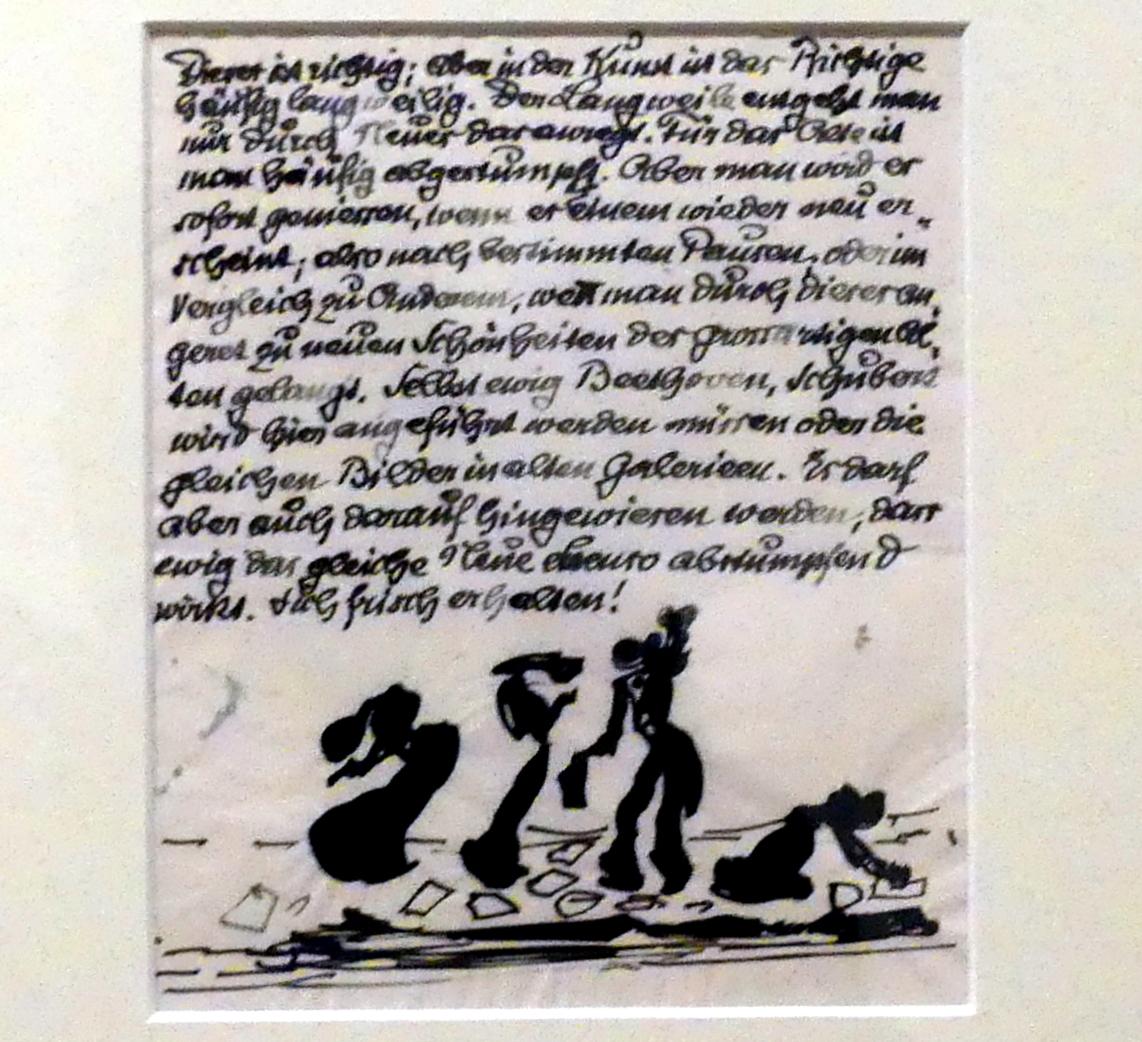 Dieses ist richtig; aber in der Kunst ist das Richtige
häufig langweilig. Der Langweile entgeht man
nur durch Neues das anregt. Für das Alte ist
man häufig abgestumpft. Aber man wird es
sofort geniessen, wenn es einem wieder neu er„
scheint; also nach bestimmten Pausen, oder im
Vergleich zu Anderem, weil man durch dieses an„
geregt zu neuen Schönheiten des grossartigen Al„
ten gelangt. Selbst ewig Beethoven, Schubert
wird hier angeführt werden müssen oder die
gleichen Bilder in alten Galerieen. Es darf
aber auch darauf hingewiesen werden, dass
ewig das gleiche Neue ebenso abstumpfend
wirkt. Sich frisch erhalten!